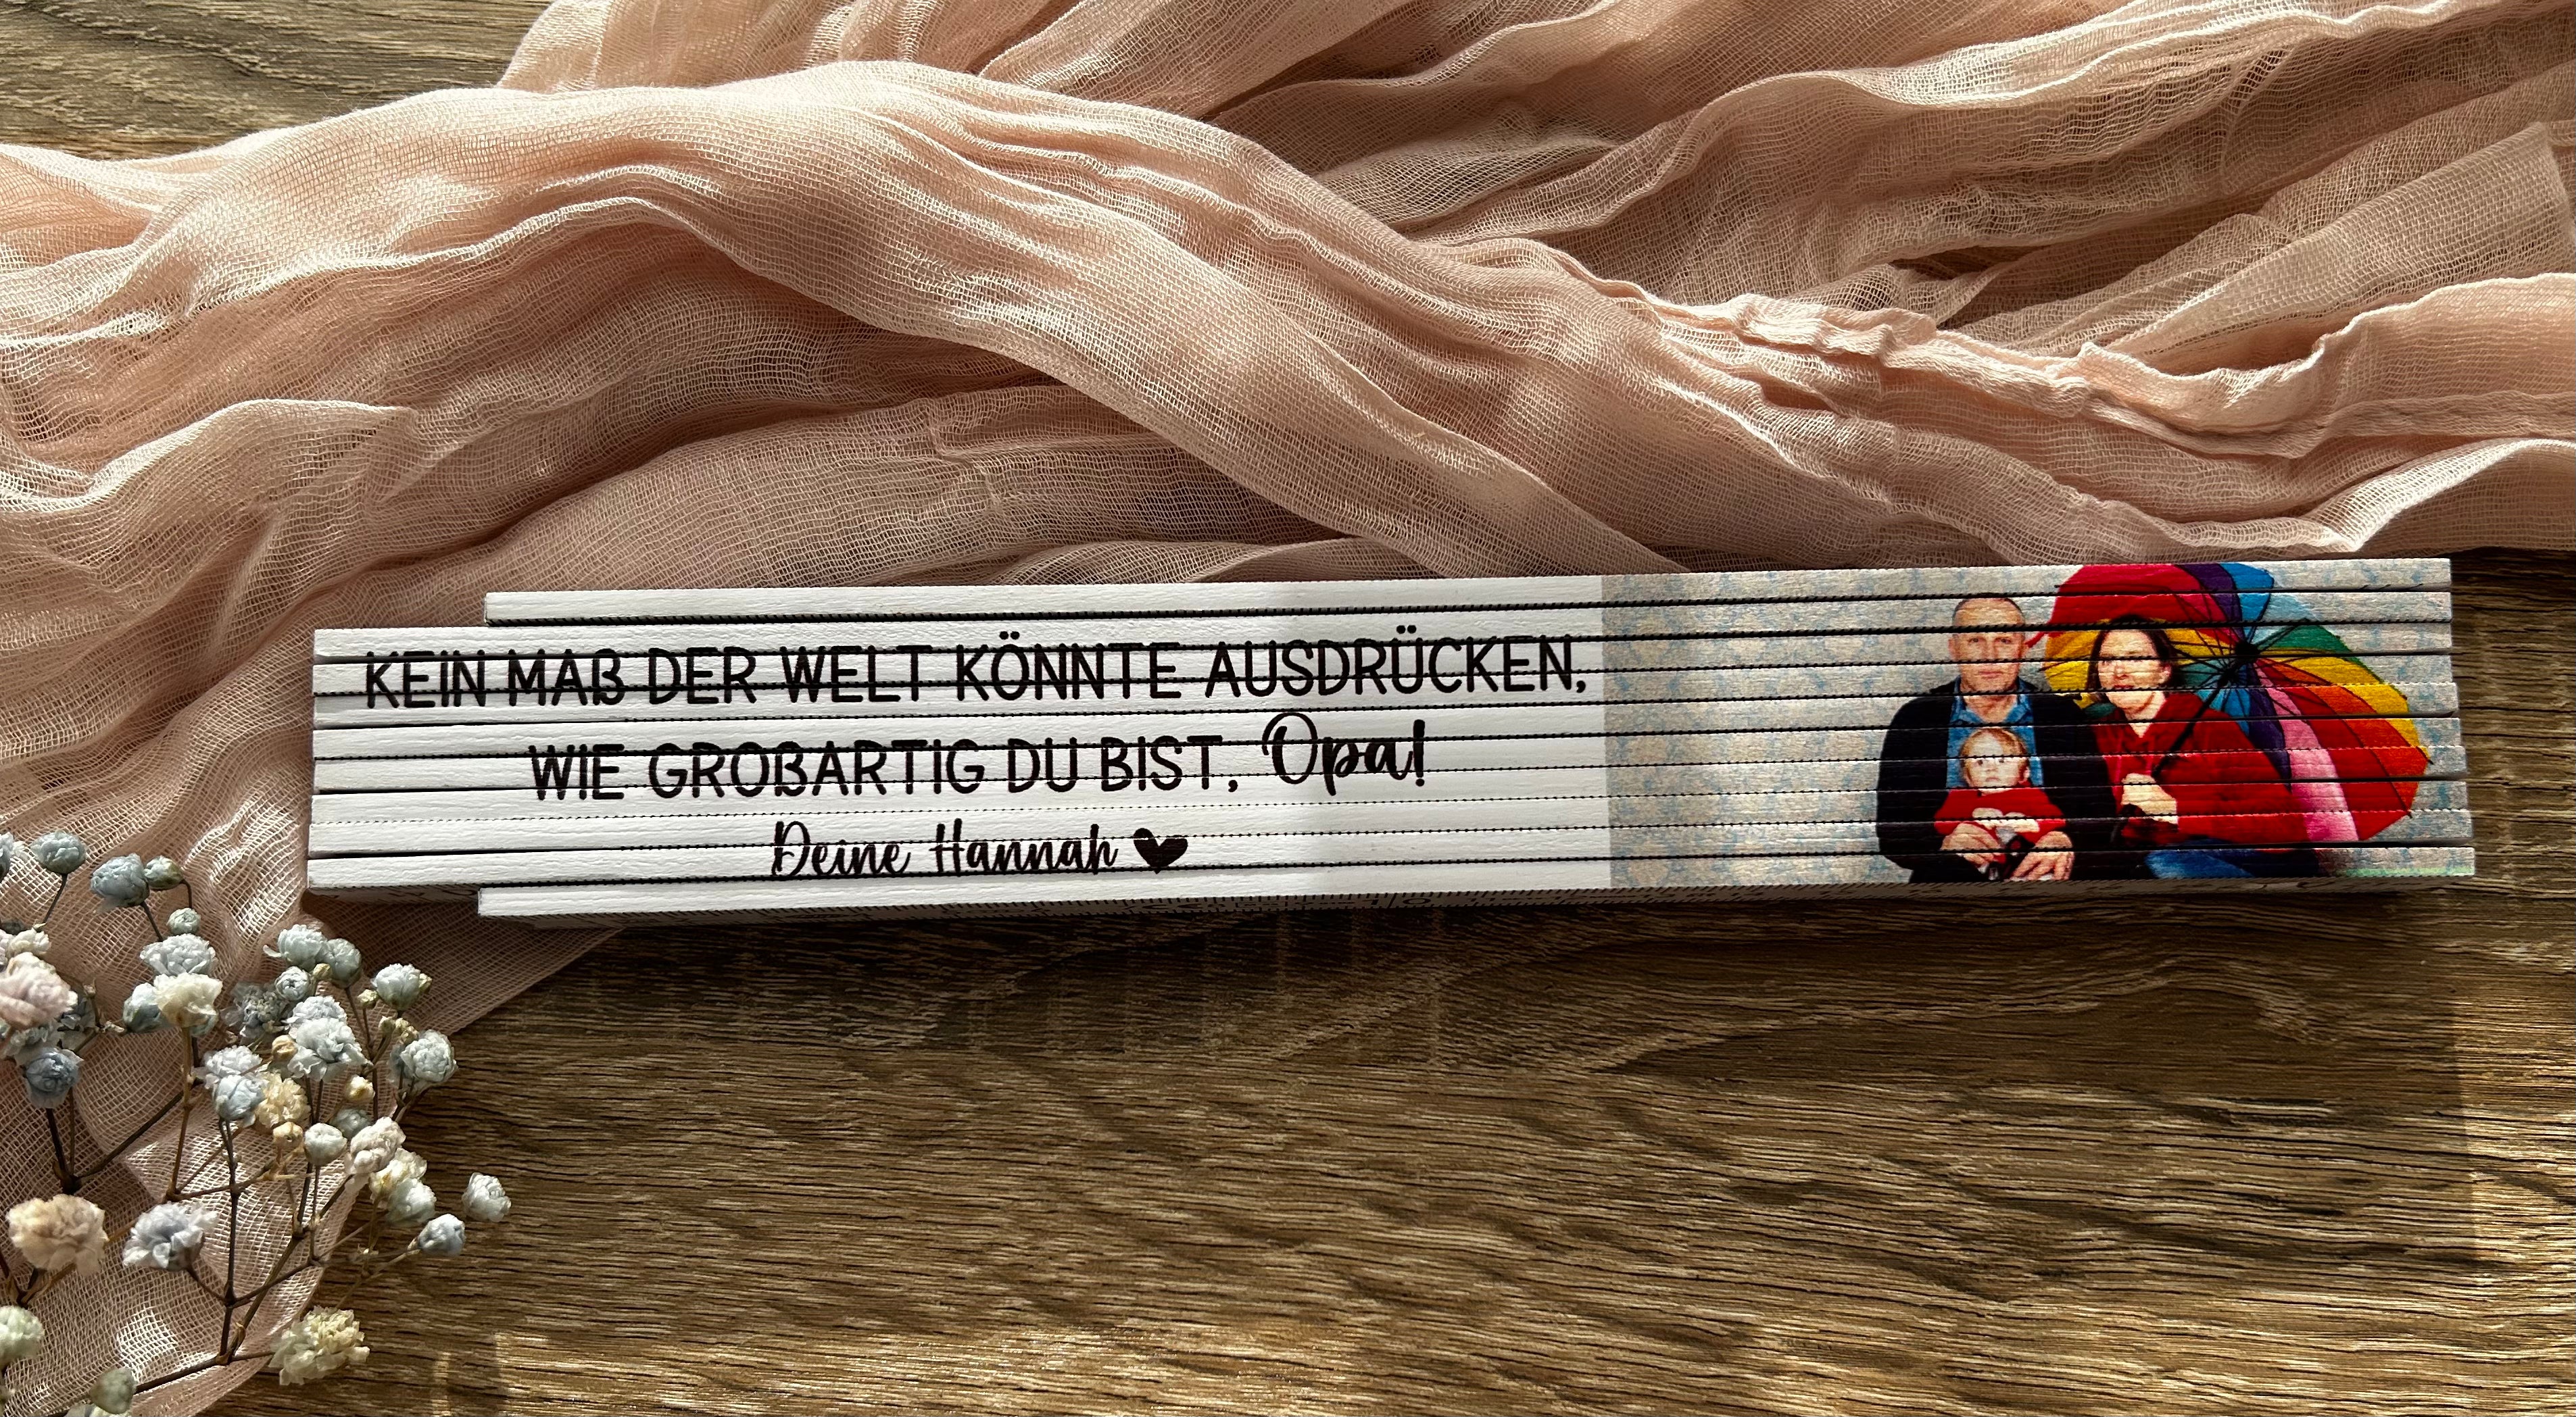 KEIN MAß DER WELT KÖNNTE AUSDRÜCKEN,
WIE GROßARTIG DU BIST, Opa!
Deine Hannah ♥